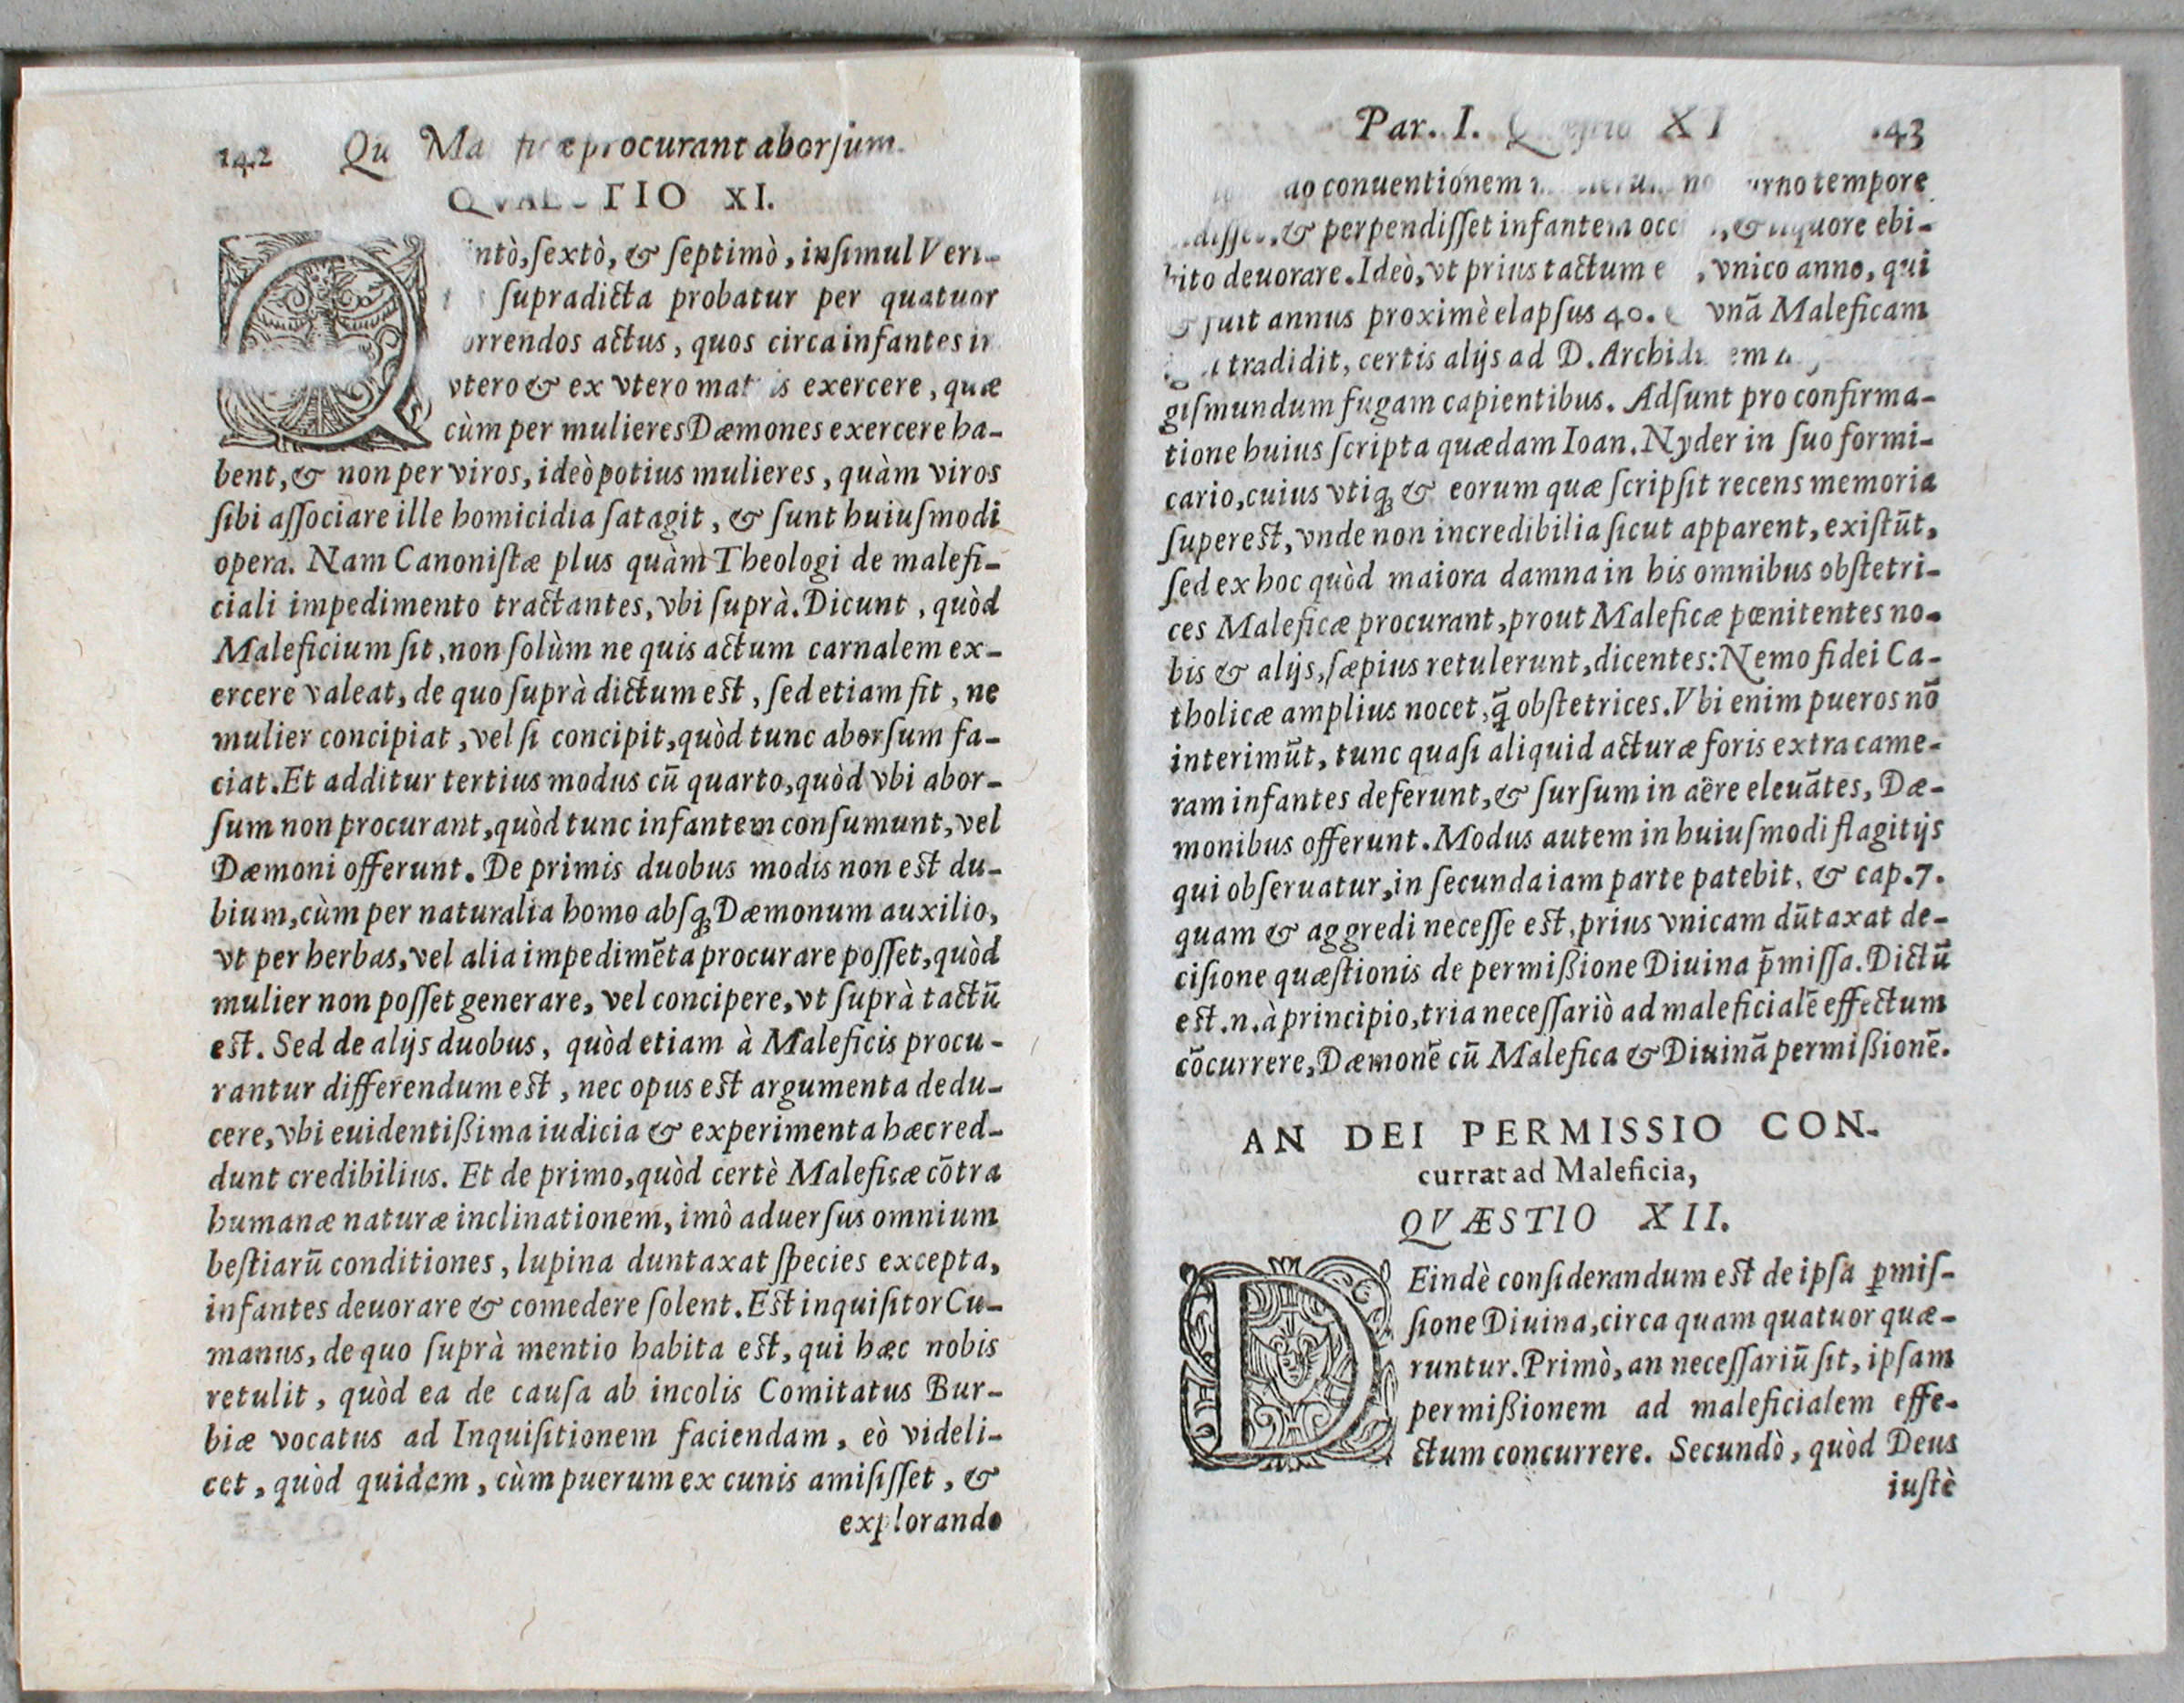 142 Qu Ma procurant aborsum.
QVAESTIO XI.
ſextò, & ſeptimò, inſimul Veri-
ſupradicta probatur per quatuor
actus, quos circa infantes in
vtero & ex vtero matris exercere, quæ
cùm per mulieres Dæmones exercere ha-
bent, & non per viros, ideò potius mulieres, quàm viros
ſibi aſſociare ille homicidia ſatagit, & ſunt huiuſmodi
opera. Nam Canoniſtæ plus quàm Theologi de malefi-
ciali impedimento tractantes, vbi ſuprà. Dicunt, quòd
Maleficium ſit, non ſolùm ne quis actum carnalem ex-
ercere valeat, de quo ſuprà dictum est, ſed etiam fit, ne
mulier concipiat, vel ſi concipit, quòd tunc aborſum fa-
ciat. Et additur tertius modus cū quarto, quòd vbi abor-
ſum non procurant, quòd tunc infantem conſumunt, vel
Dæmoni offerunt. De primis duobus modis non est du-
bium, cùm per naturalia homo abſq; Dæmonum auxilio,
vt per herbas, vel alia impedimēta procurare poſſet, quòd
mulier non poſſet generare, vel concipere, vt ſuprà tactū
est. Sed de alijs duobus, quòd etiam à Maleficis procu-
rantur differendum est, nec opus est argumenta dedu-
cere, vbi euidentißima iudicia & experimenta hæc red-
dunt credibilius. Et de primo, quòd certè Maleficæ cōtra
humanæ naturæ inclinationem, imò aduerſus omnium
beſtiarū conditiones, lupina duntaxat ſpecies excepta,
infantes deuorare & comedere ſolent. Est inquiſitor Cu-
manus, de quo ſuprà mentio habita est, qui hæc nobis
retulit, quòd ea de cauſa ab incolis Comitatus Bur-
biæ vocatus ad Inquiſitionem faciendam, eò videli-
cet, quòd quidem, cùm puerum ex cunis amiſiſſet, &
explorando
Par. I. Quæstio XI 43
conuentionem tempore
& perpendiſſet infantem & liquore ebi-
deuorare. Ideò, vt prius tactum , vnico anno, qui
fuit annus proximè elapſus 40. vnā Maleficam
tradidit, certis alijs ad D. Archid
giſmundum fugam capientibus. Adſunt pro confirma-
tione huius ſcripta quædam Ioan. Nyder in ſuo formi-
cario, cuius vtiq; & eorum quæ ſcripſit recens memoria
ſuperest, vnde non incredibilia ſicut apparent, exiſtūt,
ſed ex hoc quòd maiora damna in his omnibus obſtetri-
ces Maleficæ procurant, prout Maleficæ pœnitentes no-
bis & alijs, ſæpius retulerunt, dicentes: Nemo fidei Ca-
tholicæ amplius nocet, q̃ obſtetrices. Vbi enim pueros nō
interimūt, tunc quaſi aliquid acturæ foris extra came-
ram infantes deferunt, & ſurſum in aëre eleuātes, Dæ-
monibus offerunt. Modus autem in huiuſmodi flagitijs
qui obſeruatur, in ſecunda iam parte patebit, & cap. 7.
quam & aggredi neceſſe est, prius vnicam dūtaxat de-
ciſione quæſtionis de permißione Diuina p̄miſſa. Dictū
est.n.à principio, tria neceſſariò ad maleficialē effectum
cōcurrere, Dæmonē cū Malefica & Diuinā permißionē.
AN DEI PERMISSIO CON-
currat ad Maleficia,
QVÆSTIO XII.
Deindè conſiderandum est de ipſa ꝑmiſ-
ſione Diuina, circa quam quatuor quæ-
runtur. Primò, an neceſſariū ſit, ipſam
permißionem ad maleficialem effe-
ctum concurrere. Secundò, quòd Deus
iuſtè